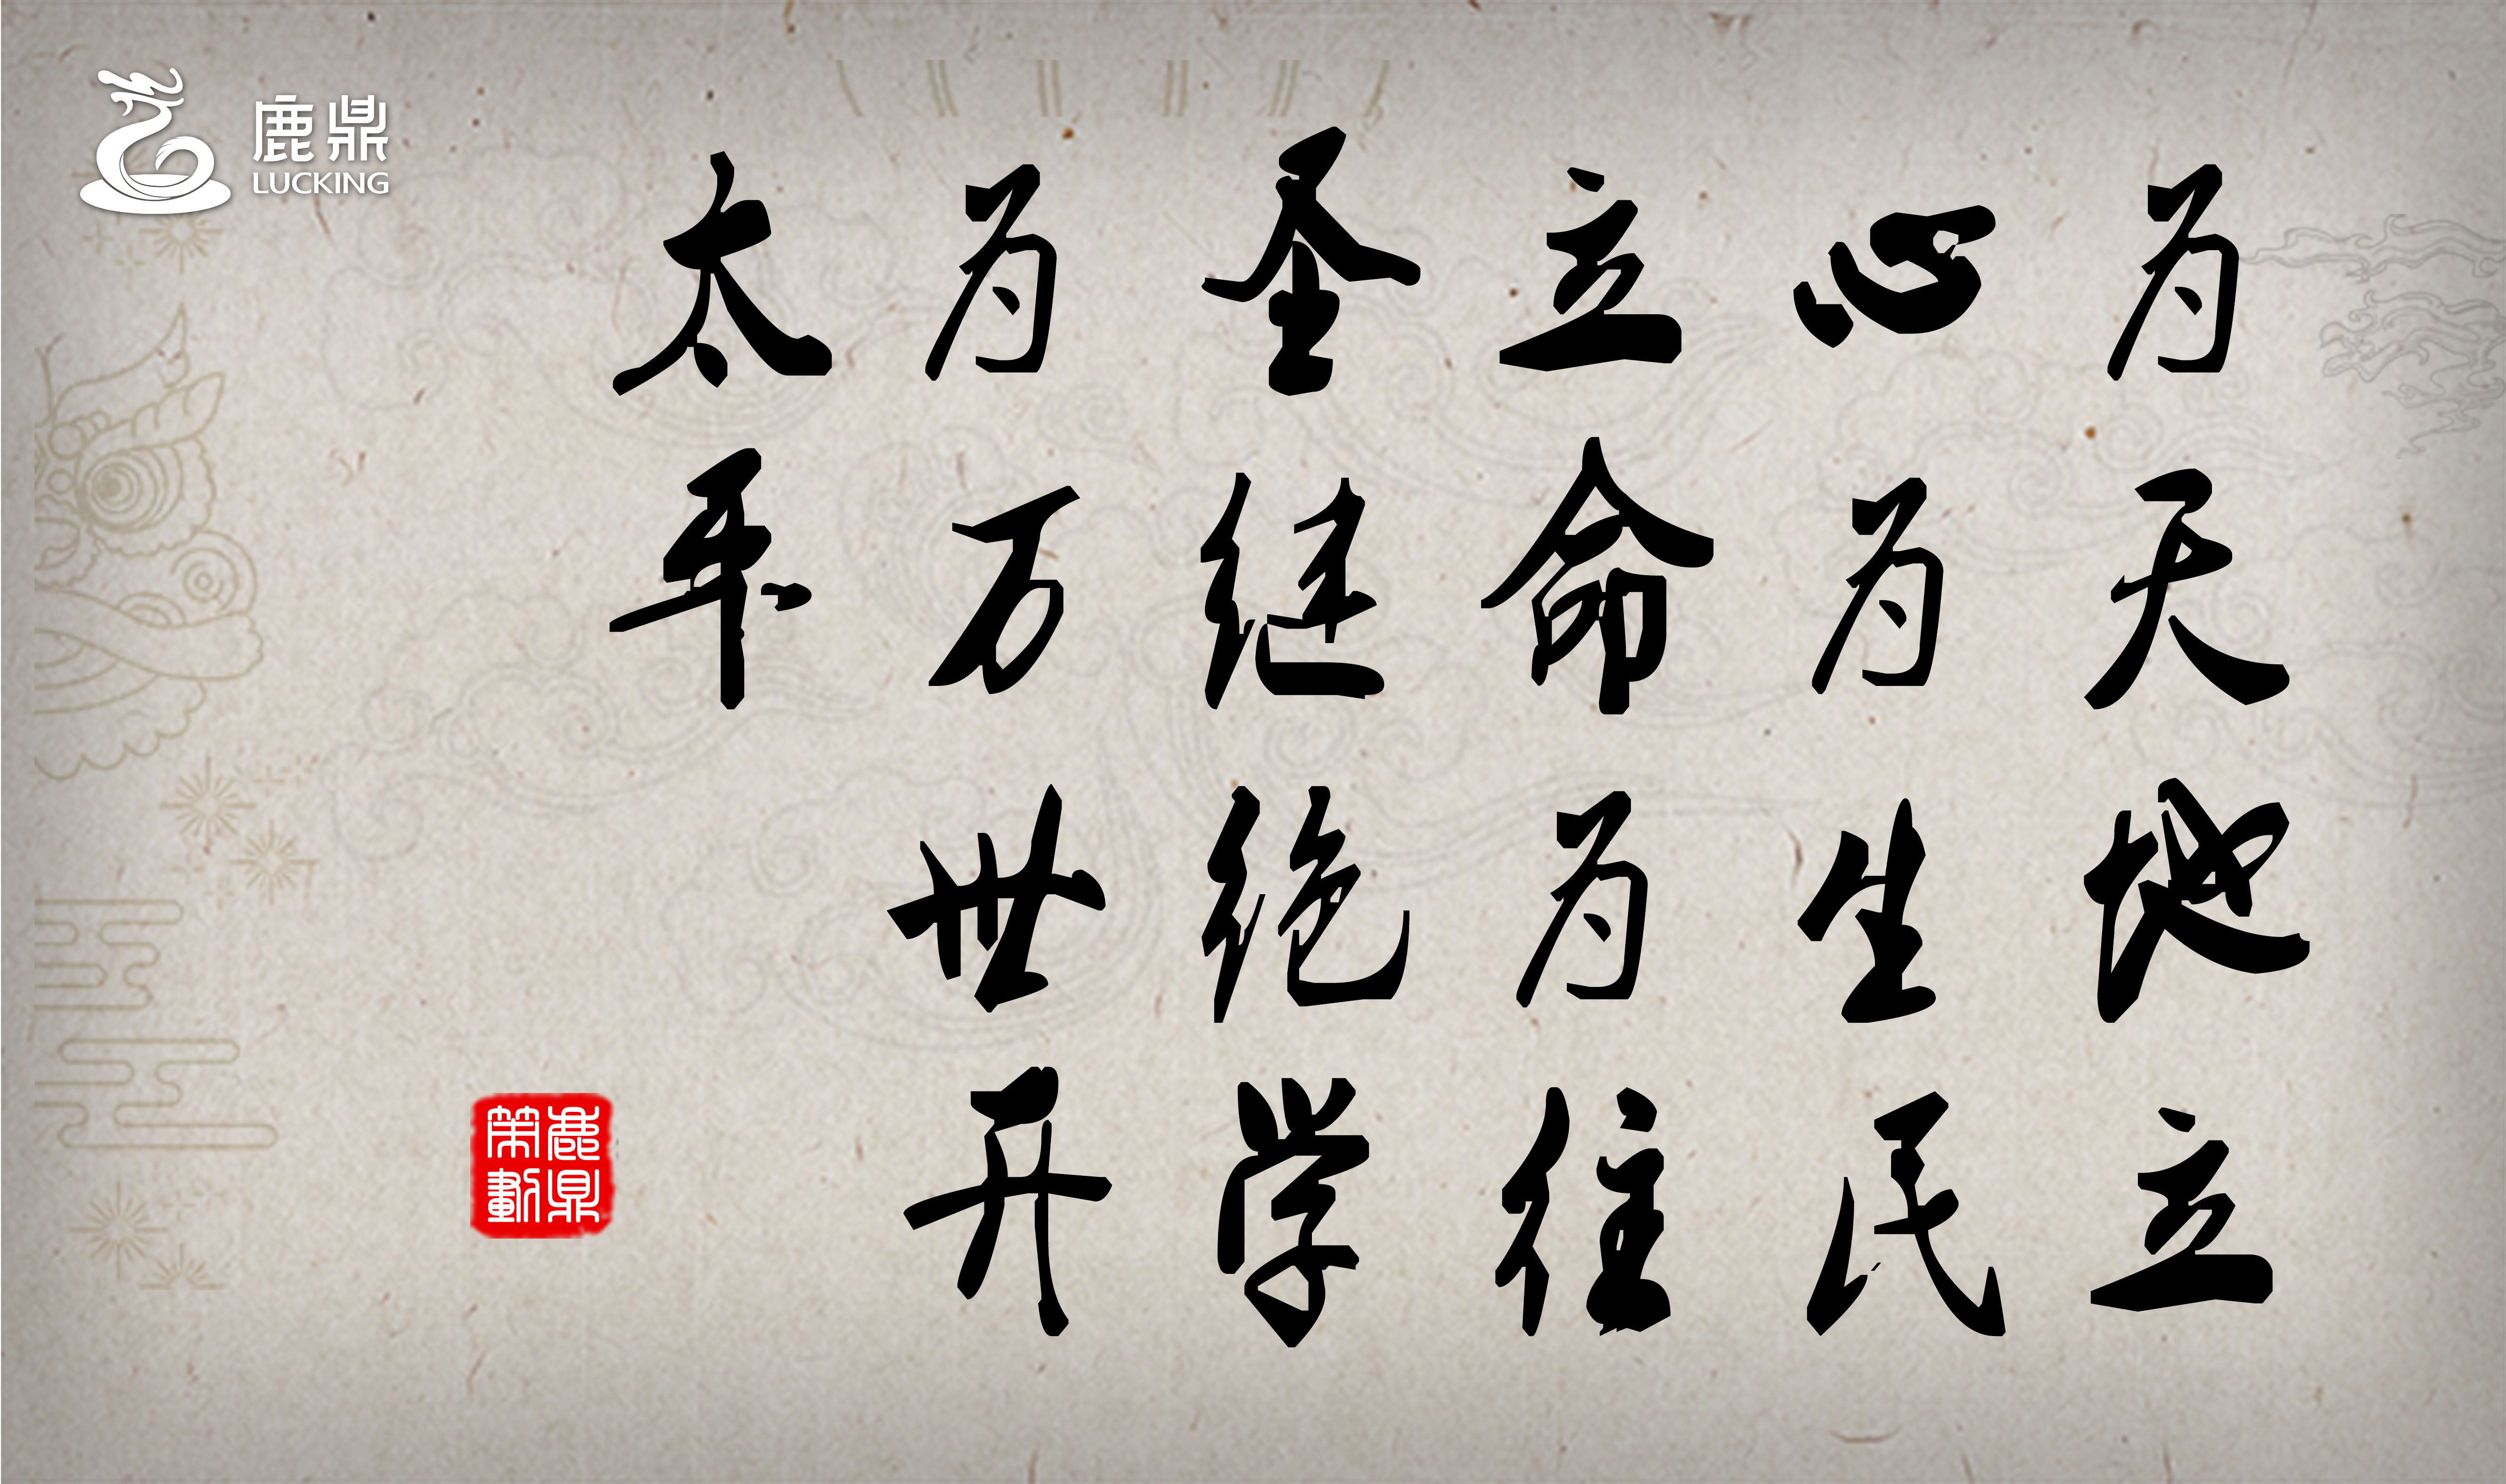 鹿鼎
LUCKING
为天地立
心为生民
立命为往
圣继绝学
为万世开
太平
鹿鼎
策劃